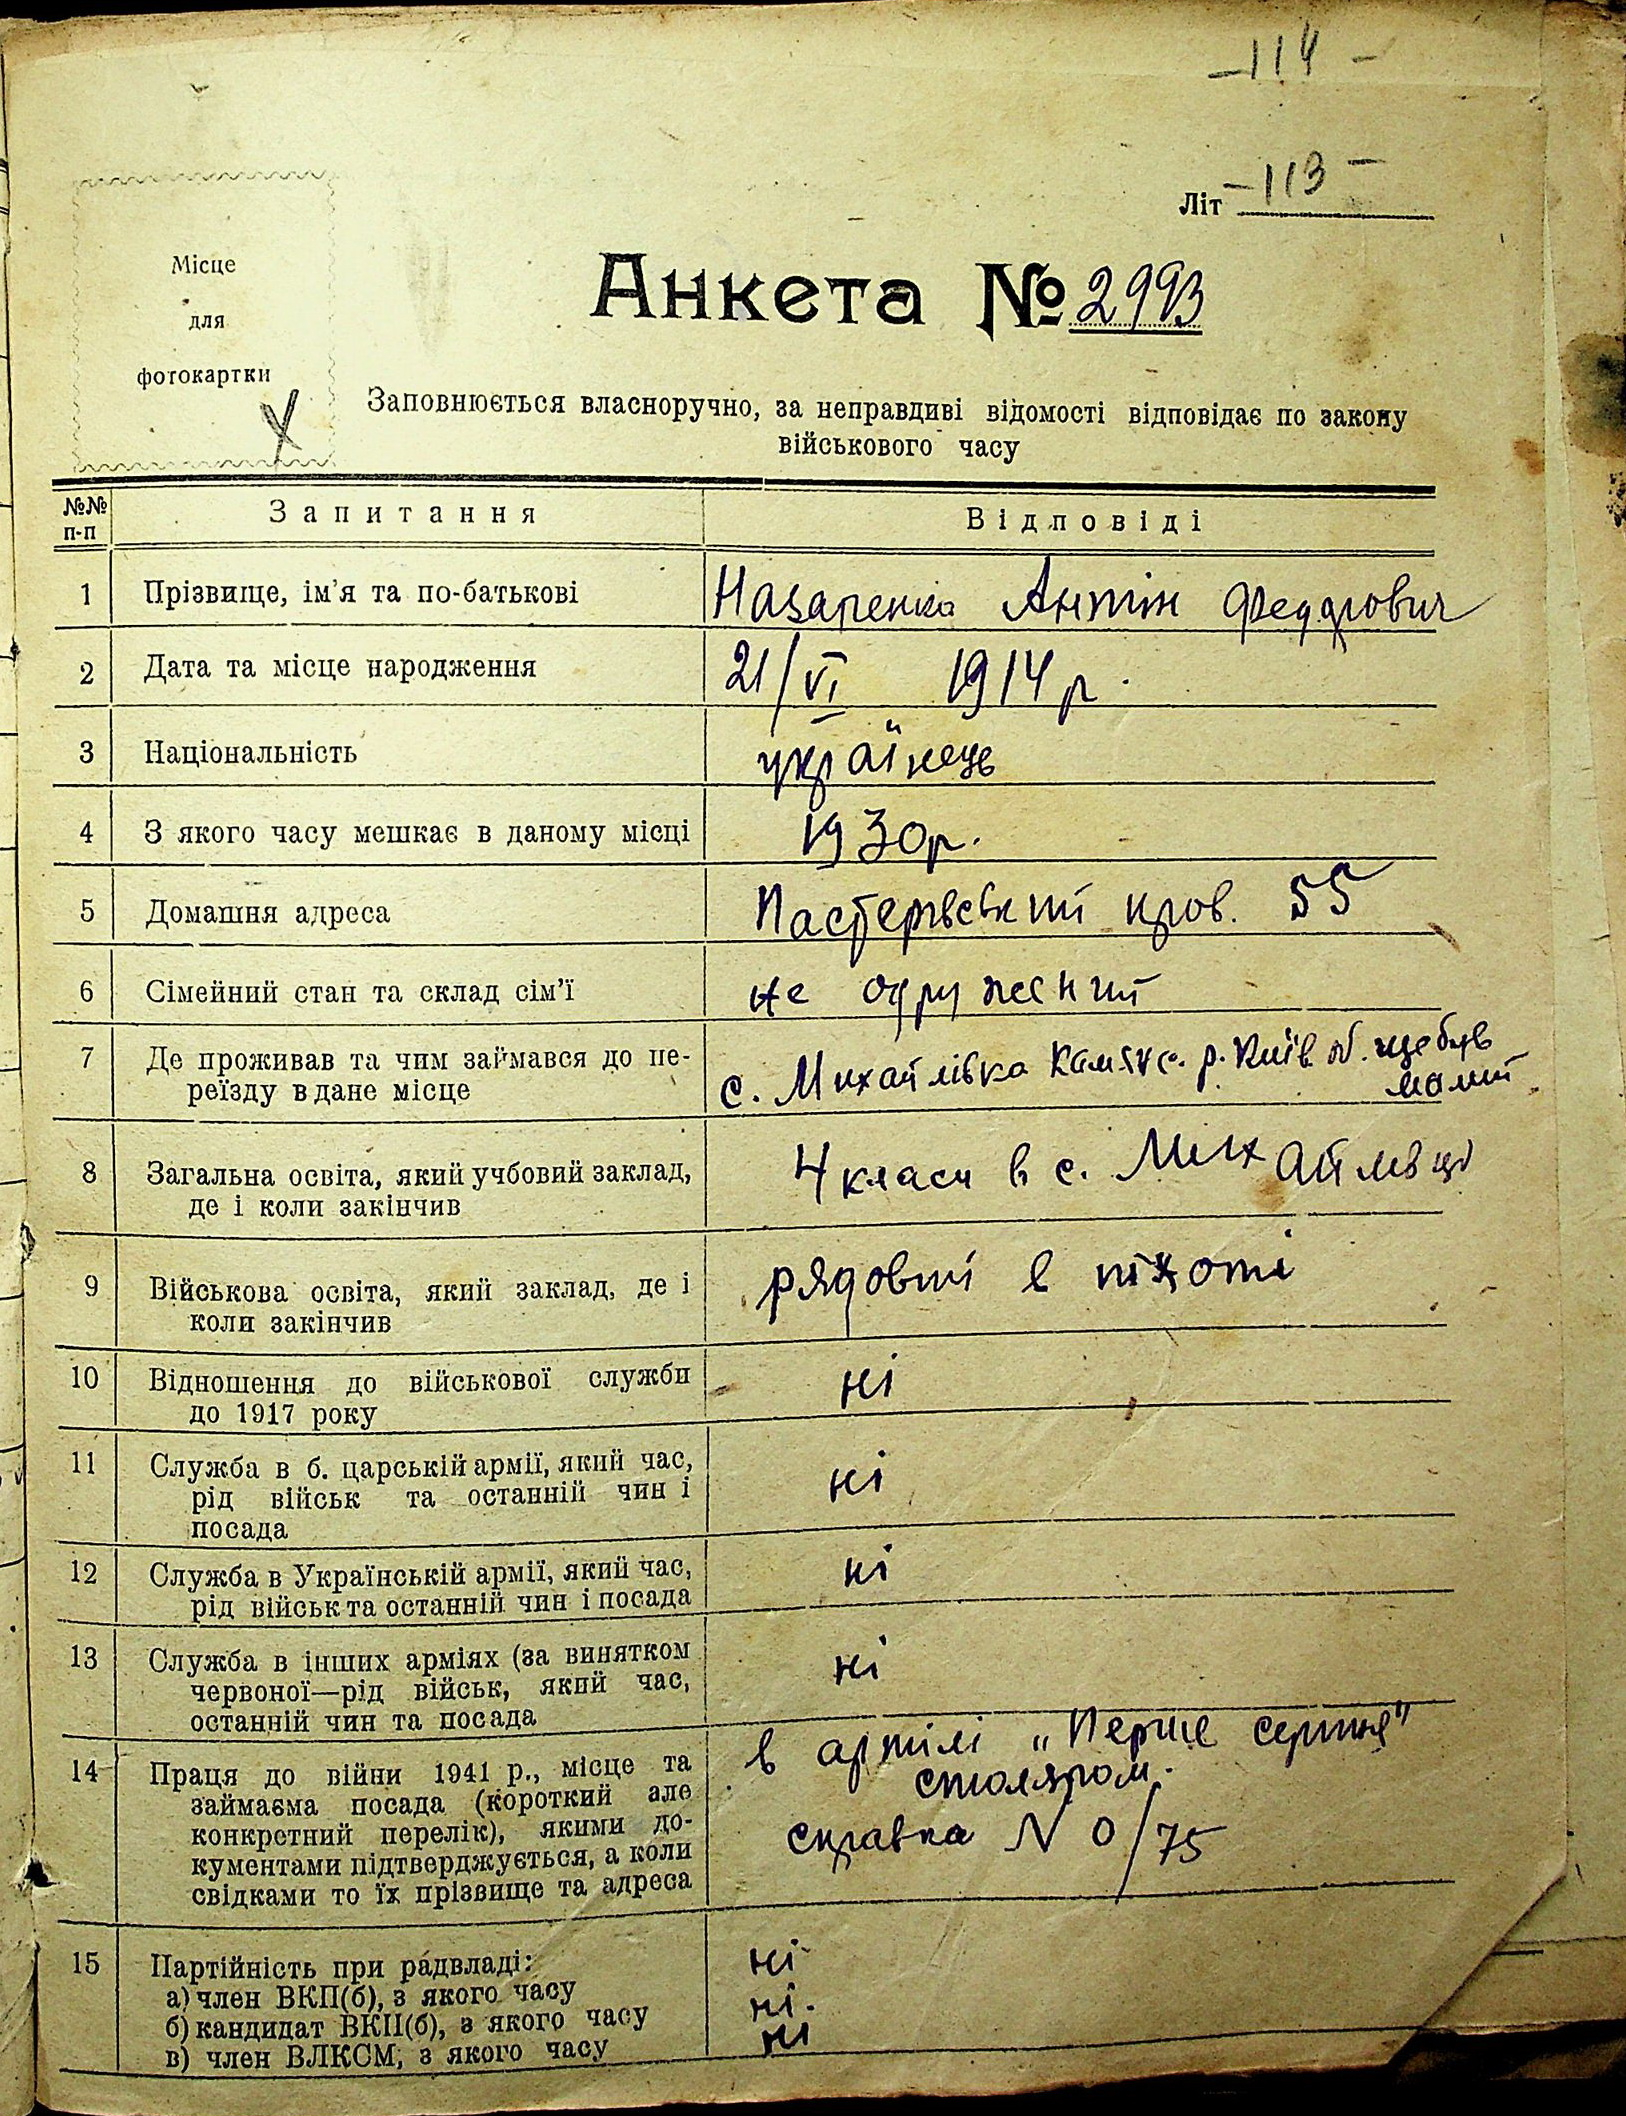 -114-
Літ -113-
Місце
для
фотокартки
Анкета № 2993
Заповнюється власноручно, за неправдиві відомості відповідає по закону
військового часу
№№
п-п
Запитання
Відповіді
1 Прізвище, ім'я та по-батькові Назаренко Антін Федорович
2 Дата та місце народження 21/VI 1914 р.
3 Національність українець
4 З якого часу мешкає в даному місці 1930р.
5 Домашня адреса пров. 55
6 Сімейний стан та склад сім'ї не одружений
7 Де проживав та чим займався до пе-
реїзду в дане місце с. Михайлівка р. Київ об. ще був
малий
8 Загальна освіта, який учбовий заклад,
де і коли закінчив 4 класи в с. Михайлівці
9 Військова освіта, який заклад, де і
коли закінчив рядовий в піхоті
10 Відношення до військової служби
до 1917 року ні
11 Служба в б. царській армії, який час,
рід військ та останній чин і
посада ні
12 Служба в Українській армії, який час,
рід військ та останній чин і посада ні
13 Служба в інших арміях (за винятком
червоної—рід військ, який час,
останній чин та посада ні
14 Праця до війни 1941 р., місце та
займаєма посада (короткий але
конкретний перелік), якими до-
кументами підтверджується, а коли
свідками то їх прізвище та адреса
в артілі „Перше серпня"
столяром.
справка N 0/75
15 Партійність при радвладі: ні
а) член ВКП(б), з якого часу ні.
б) кандидат ВКП(б), з якого часу ні
в) член ВЛКСМ, з якого часу